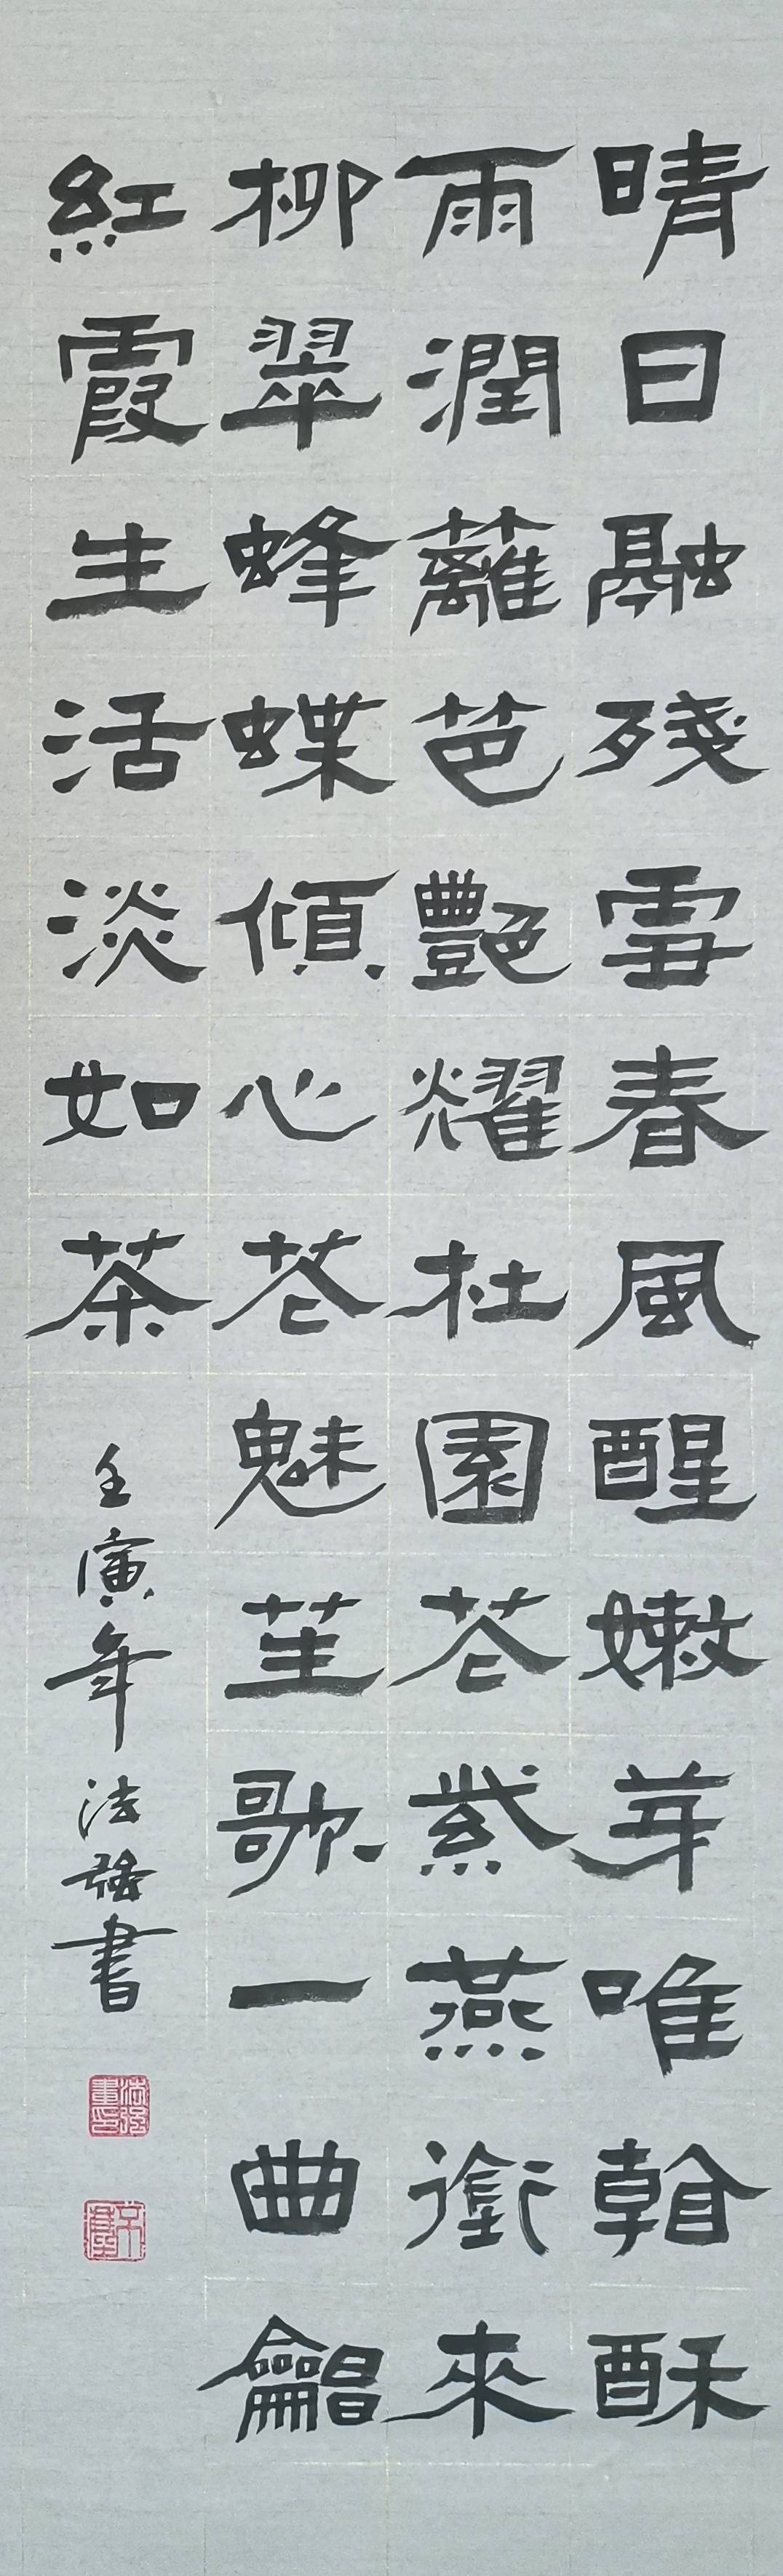 晴日融殘雪春風醒嫩芽唯酥
雨潤蘺芭艷耀杜園花紫燕銜來
柳翠蜂蝶傾心花魅苼歌一曲
紅霞生活淡如茶
壬寅年法強書